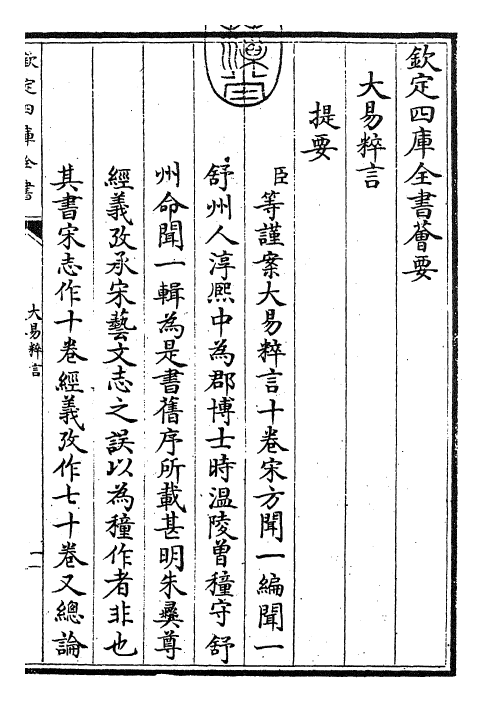 欽定四庫全書薈要
大易粹言
提要
臣等謹案大易粹言十卷宋方聞一編聞一
舒州人淳熙中為郡博士時温陵曾穜守舒
州命聞一輯為是書舊序所載甚明朱彛尊
經義攷承宋藝文志之誤以為穜作者非也
其書宋志作十卷經義攷作七十卷又總論
欽定四庫全書
大易粹言